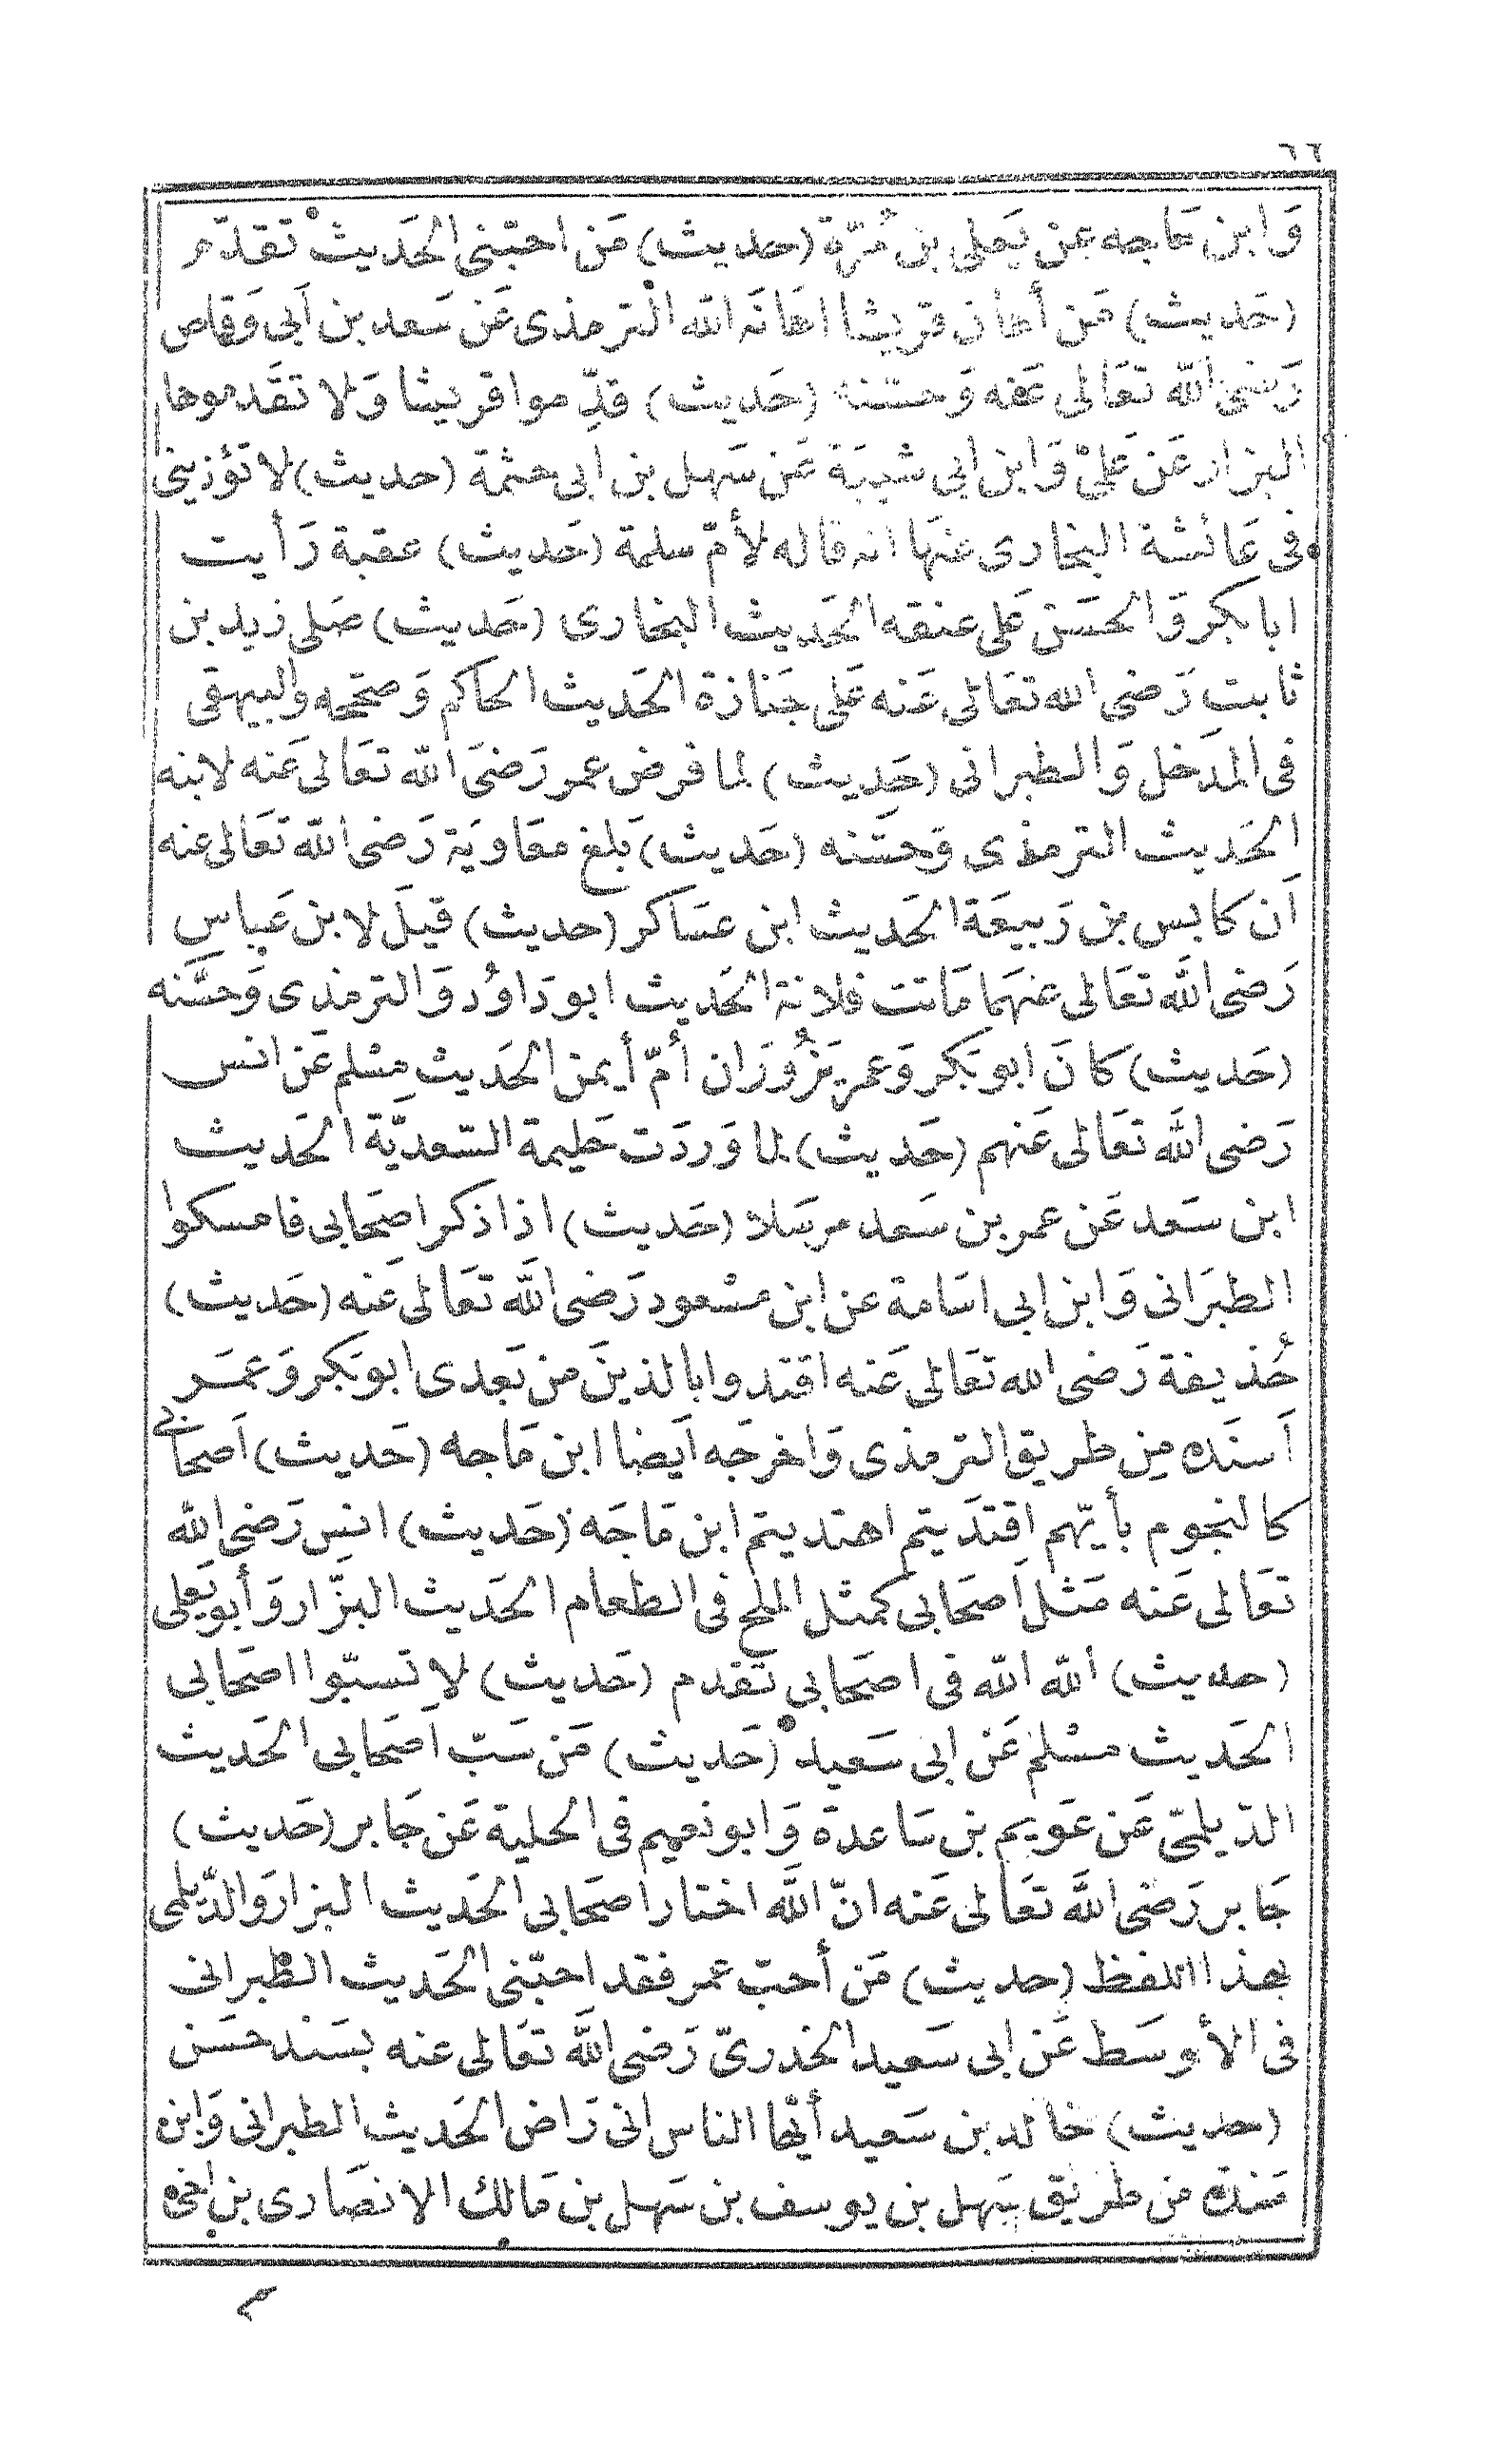 ٦٦
وَابن مَاجه عن يَعلى بن مُرّة (حديث) مَن احبّنى الحَديث تقدّم
(حَديث) مَن أهان قريشا اهَانَه الله الترمذى عَن سَعد بن اَبى وَقاص
رَضى الله تعَالى عَنه وَحسّنه (حَديث) قدِّموا قريشا وَلا تقَدموها
البزار عَن عَلىّ وَابن ابى شيبَة عَن سَهل بن ابى حثمة (حديث) لا تؤذينى
فى عَائشة البخارى عنهَا انه قاله لأمّ سلمة (حَديث) عقبة رَأيت
ابابكر وَالحسَن عَلى عنقه الحَديث البخارى (حَديث) صَلى زيد بن
ثابت رَضى الله تعَالى عَنه عَلى جَنازة الحَديث الحاكم وَصحّحه والبيهقى
فى المدَخل وَالطبرانى (حَديث) لما فرض عمر رَضىَ الله تعَالى عَنه لابنه
الحَديث الترمذى وَحسَّنه (حَديث) بَلغ معَاويَة رَضى الله تعَالى عنه
اَن كابس بن رَبيعَة الحَديث ابن عسَاكر (حديث) قيلَ لابن عَباس
رَضى الله تعَالى عنهمَا مَاتت فلانة الحَديث ابو دَاوُد وَالترمذى وَحسَّنه
(حَديث) كانَ ابو بَكر وَعمر يَزُورَان أمّ أيمن الحَديث مسْلم عَن انس
رَضى الله تعَالى عَنهم (حَديث) لما وَردَت حَليمة السّعديّة الحَديث
ابن سَعد عَن عمر بن سَعد مرسَلا (حَديث) اذا ذكر اصحَابى فامسكوا
الطبرَانى وَابن ابى اسَامة عن ابن مسْعود رَضى اللَّه تعَالى عَنه (حَديث)
حُذيفة رَضى الله تعَالى عَنه اقتدوا بالذينَ من بَعدى ابو بَكر وَعمَر
اَسنَده من طريق الترمذى وَاخرجَه اَيضا ابن مَاجه (حَديث) اَصحَابى
كالنجوم بأيّهم اقتدَيتم اهتديتم ابن مَاجَه (حَديث) انس رَضى الله
تعَالى عَنه مَثل اَصحَابى كمثل الملح فى الطعَام الحَديث البزّار وَأبو يَعلى
(حديث) الله الله فى اصحَابى تقدم (حَديث) لا تسبّوا اصحَابى
الحَديث مسْلم عَن ابى سَعيد (حَديث) مَن سَبّ اَصحَابى الحَديث
الدّيلمىّ عَن عَويم بن سَاعدة وَابو نعيم فى الحلية عَن جَابر (حَديث)
جَابر رَضى اللَّه تعَالى عَنه انّ اللَّه اختار اصحَابى الحَديث البزار وَالدّيلمى
بهذا اللفظ (حديث) مَن أحبّ عمر فقد احبّنى الحَديث الطبرانى
فى الأوسَط عَن ابى سَعيد الخدرىّ رَضى اللَّه تعَالى عنه بسَند حسَن
(حديث) خالد بن سَعيد أيّها الناس انى رَاض الحَديث الطبرانى وَابن
مَنده من طريق سهل بن يوسف بن سَهل بن مَالك الانصَارى بن اخى